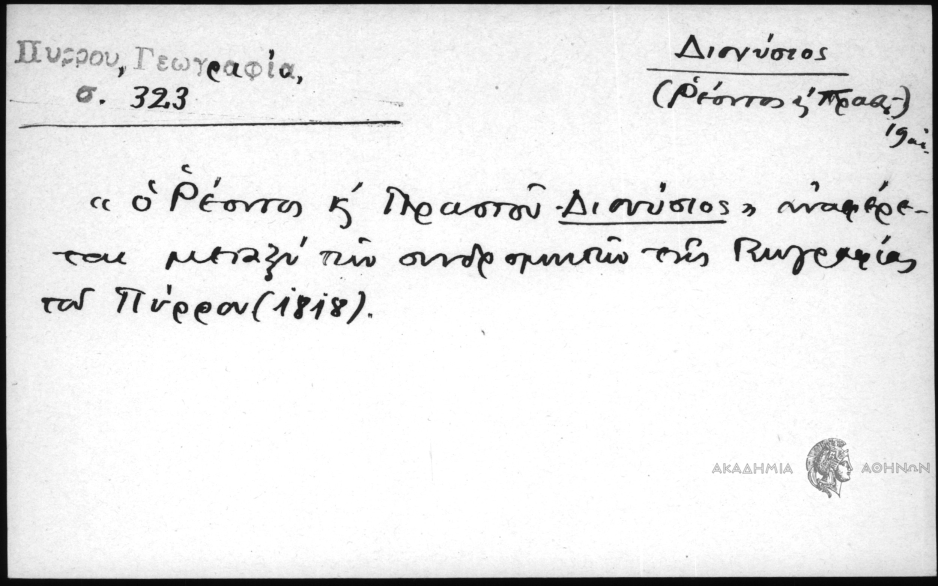 Πυρρου, Γεωγραφία,
σ. 323
Διονύσιος
(Ῥέοντος κ Πρασ.)
19 αἰ.
« ὁ Ῥέοντος κ Πραστοῦ Διονύσιος » ἀναφέρε-
ται μεταξὺ τῶν συνδρομητῶν τῆς Γεωγραφίας
τοῦ Πύρρου (1818).
ΑΚΑΔΗΜΙΑ ΑΘΗΝΩΝ